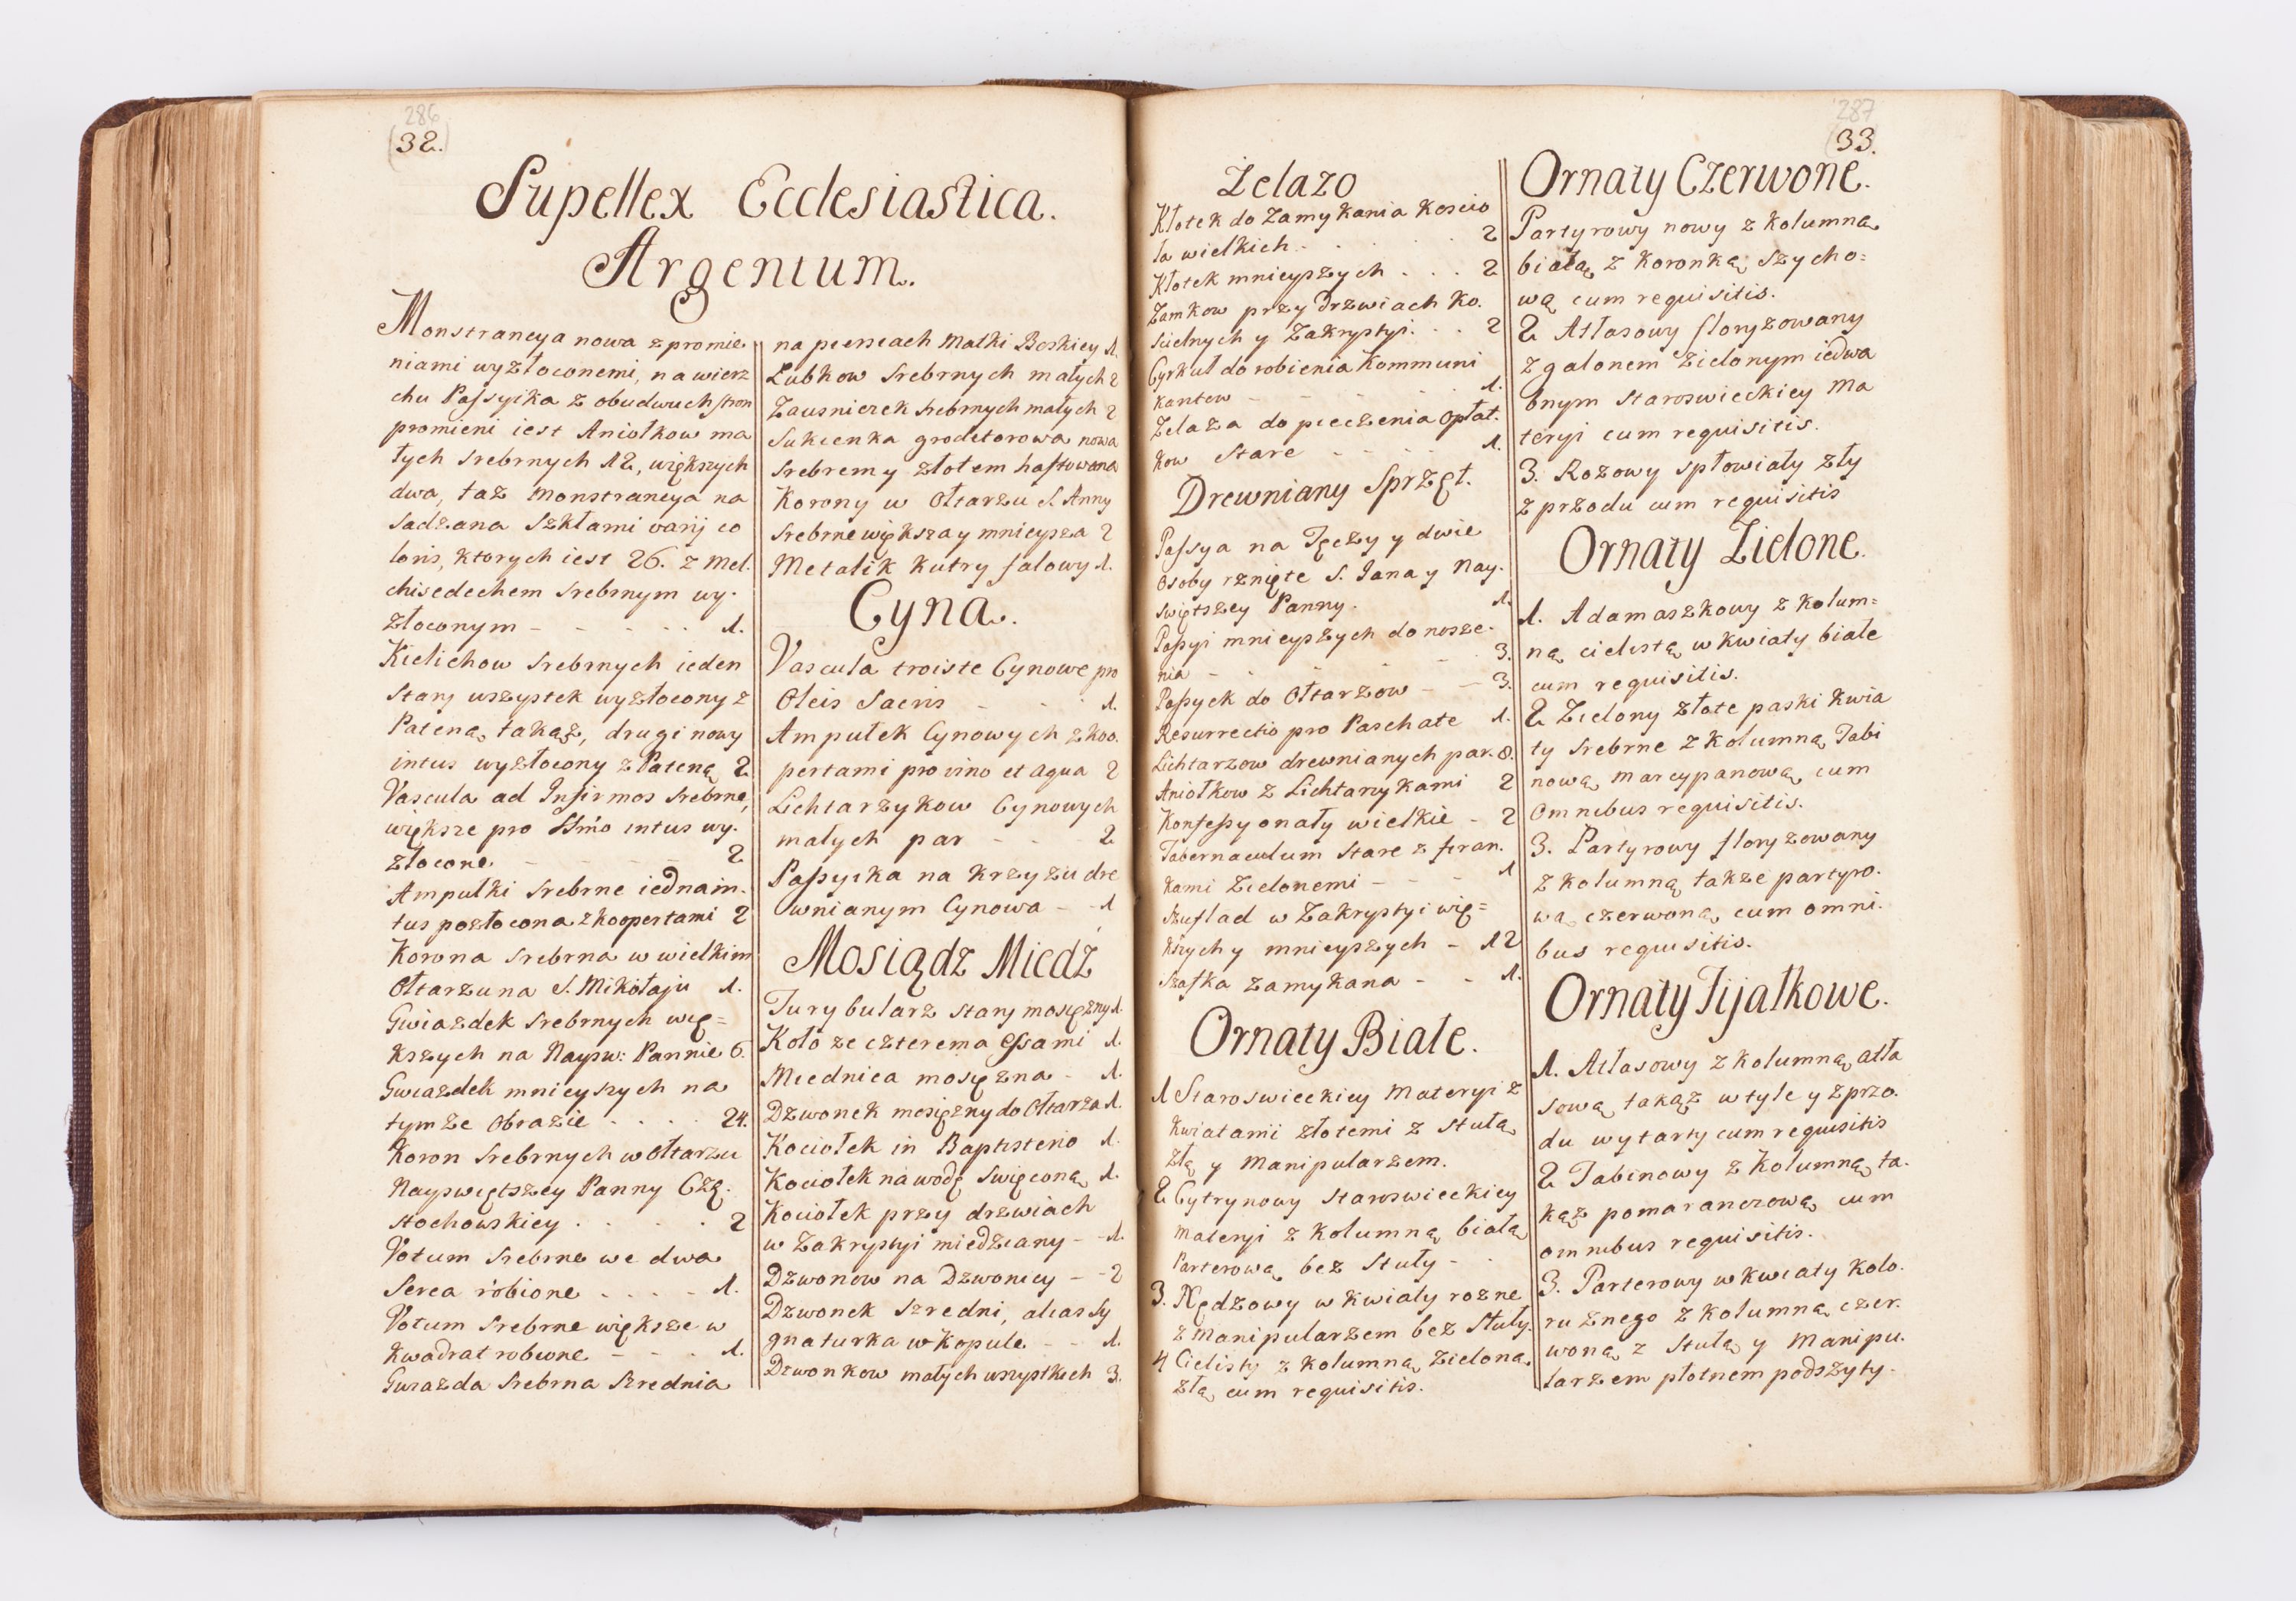 286
(32.)
Supellex Ecclesiastica.
Argentum.
Monstrancya nowa z promie
niami wyzłoconemi, na wierz
chu Passyika z obudwuch stron
promieni iest Aniołkow ma
łych srebrnych 12, większych
dwa, taż Monstrancya na
sadzana Szkłami varij co
loris, ktorych iest 26. z Mel.
chisedechem srebrnym wy.
złoconym - - - - 1.
Kielichow srebrnych ieden
stary wszystek wyzłocony z
Pateną takąż, drugi nowy
intus wyzłocony z Pateną 2
Vascula ad Infirmos srebrne,
większe pro SSmo intus wy.
złocone - - - - 2
Ampułki srebrne iedna in.
tus pozłocona z koopertami 2
Korona srebrna w wielkim
Ołtarzu na S. Mikołaju 1.
Gwiazdek srebrnych wię=
kszych na Nayśw: Pannie 6.
Gwiazdek mnieyszych na
tymże Obrazie . . . . 24.
Koron srebrnych w Ołtarzu
Nayswiętszey Panny Czę.
stochowskiey . . . . . 2
Votum srebrne we dwa
serca robione . . . . 1.
Votum srebrne większe w
kwadrat robione - - . 1.
Gwiazda srebrna szrednia
na piersiach Matki Boskiey 1.
Lubkow srebrnych małych 2
Zausnierek srebrnych małych 2
Sukienka grodetorowa nowa
srebrem y złotem haftowana
Korony w Ołtarzu S. Anny
srebrne większa y mnieysza 2
Metalik kutry falowy 1.
Cyna.
Vascula troiste Cynowe pro
Oleis Sacris - - - 1.
Ampułek Cynowych z koo.
pertami pro vino et aqua 2
Lichtarzykow Cynowych
małych par - - - 2
Passyika na krzyżu dre
wnianym Cynowa - - 1
Mosiądz Miedź
Turybularz stary mosiężny 1.
Koło ze czterema Essami 1.
Miednica mosiężna - 1.
Dzwonek mosiężny do Ołtarza 1.
Kociołek in Baptisterio 1.
Kociołek na wodę święconą 1.
Kociołek przy drzwiach
w Zakrystyi miedziany - - 1.
Dzwonow na Dzwonicy - - 2
Dzwonek szredni, alias Sy
gnaturka w Kopule - - 1.
Dzwonkow małych wszystkich 3.
287
(33.)
Żelazo
Kłotek do zamykania Koscio
ła wielkich . . . . . 2
Kłotek mnieyszych . . . 2
Zamkow przy Drzwiach Ko.
scielnych y Zakrystyi . . . 2
Cyrkuł do robienia Kommuni
kantow - - - - 1.
Żelaza do pieczenia Opłat.
kow Stare - - - - 1.
Drewniany Sprzęt.
Passya na Tęczy y dwie
osoby rznięte S. Jana y Nay.
świętszey Panny . 1.
Passyi mnieyszych do nosze.
nia - - - - - 3.
Passyek do Ołtarzow - - 3.
Resurrectio pro Paschate 1.
Lichtarzow drewnianych par. 8.
Aniołkow z Lichtarzykami 2
Konfessyonały wielkie - 2
Tabernaculum stare z firan.
kami Zielonemi - - - 1
Szuflad w Zakrystyi wię=
kszych y mnieyszych - 12
Szafka zamykana - - 1.
Ornaty Białe.
1 Staroswieckiey Materyi z
kwiatami złotemi z stułą
złą y Manipularzem.
2 Cytrynowy Staroswieckiey
materyi z kolumną białą
Parterową bez Stuły -
3. Nędzowy w kwiaty rozne
z Manipularzem bez Stuły.
4 Cielisty z kolumną zieloną
złą cum requisitis.
Ornaty Czerwone.
Partyrowy nowy z kolumną
białą z koronką szycho=
wą cum requisitis.
2 Atłasowy floryzowany
z galonem zielonym iedwa
bnym staroswieckiey Ma
teryi cum requisitis.
3. Rozowy spłowiały zły
z przodu cum requisitis
Ornaty Zielone.
1. Adamaszkowy z kolum=
ną cielistą w kwiaty białe
cum requisitis.
2 Zielony złote paski kwia
ty srebrne z kolumną Tabi
nową marcypanową cum
omnibus requisitis.
3. Partyrowy floryzowany
z kolumną także partyro.
wą czerwoną cum omni.
bus requisitis.
Ornaty Fijałkowe.
1. Atłasowy z kolumną atła
sową takąż w tyle y z przo.
du wytarty cum requisitis
2 Tabinowy z kolumną ta.
kąż pomaranczową cum
omnibus requisitis.
3. Parterowy w kwiaty kolo.
ru żnego z kolumną czer.
woną z stułą y Manipu.
larzem płotnem podszyty.